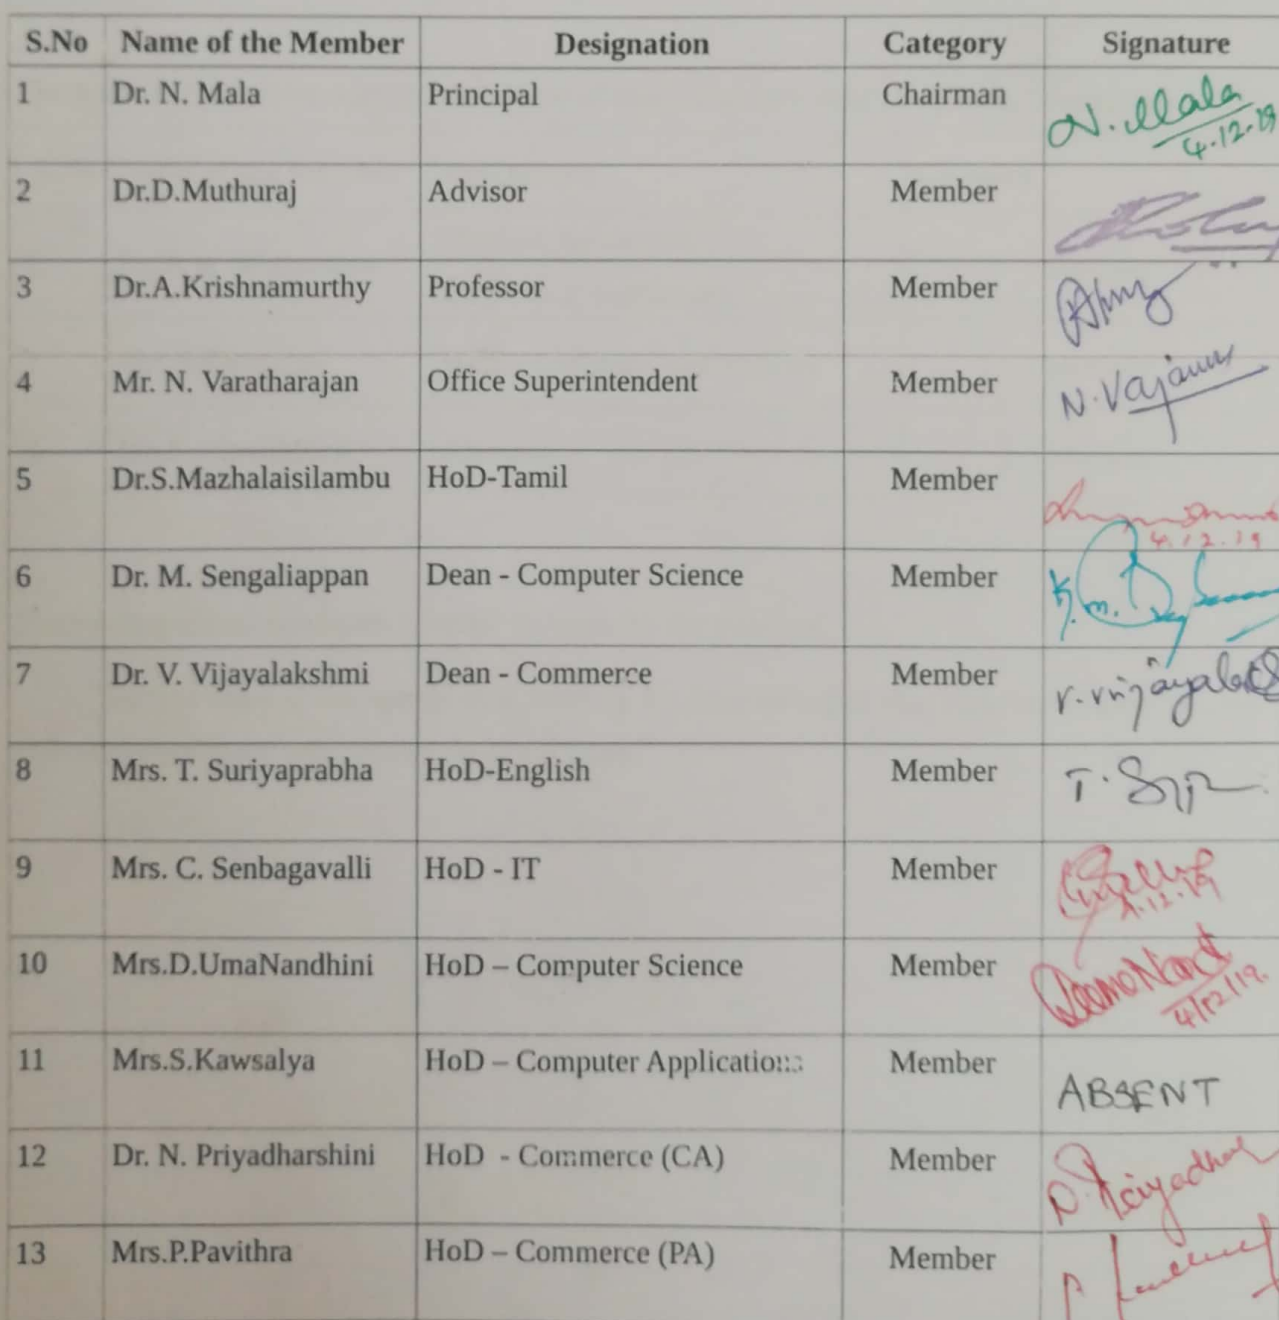 S.No Name of the Member Designation Category Signature
1 Dr. N. Mala Principal Chairman N. Mala
4.12.19
2 Dr.D.Muthuraj Advisor Member
3 Dr.A.Krishnamurthy Professor Member
4 Mr. N. Varatharajan Office Superintendent Member
5 Dr.S.Mazhalaisilambu HoD-Tamil Member
4.12.19
6 Dr. M. Sengaliappan Dean - Computer Science Member
7 Dr. V. Vijayalakshmi Dean - Commerce Member
8 Mrs. T. Suriyaprabha HoD-English Member
9 Mrs. C. Senbagavalli HoD - IT Member
4.12.19
10 Mrs.D.UmaNandhini HoD – Computer Science Member
4/12/19
11 Mrs.S.Kawsalya HoD – Computer Applications Member ABSENT
12 Dr. N. Priyadharshini HoD - Commerce (CA) Member
13 Mrs.P.Pavithra HoD – Commerce (PA) Member